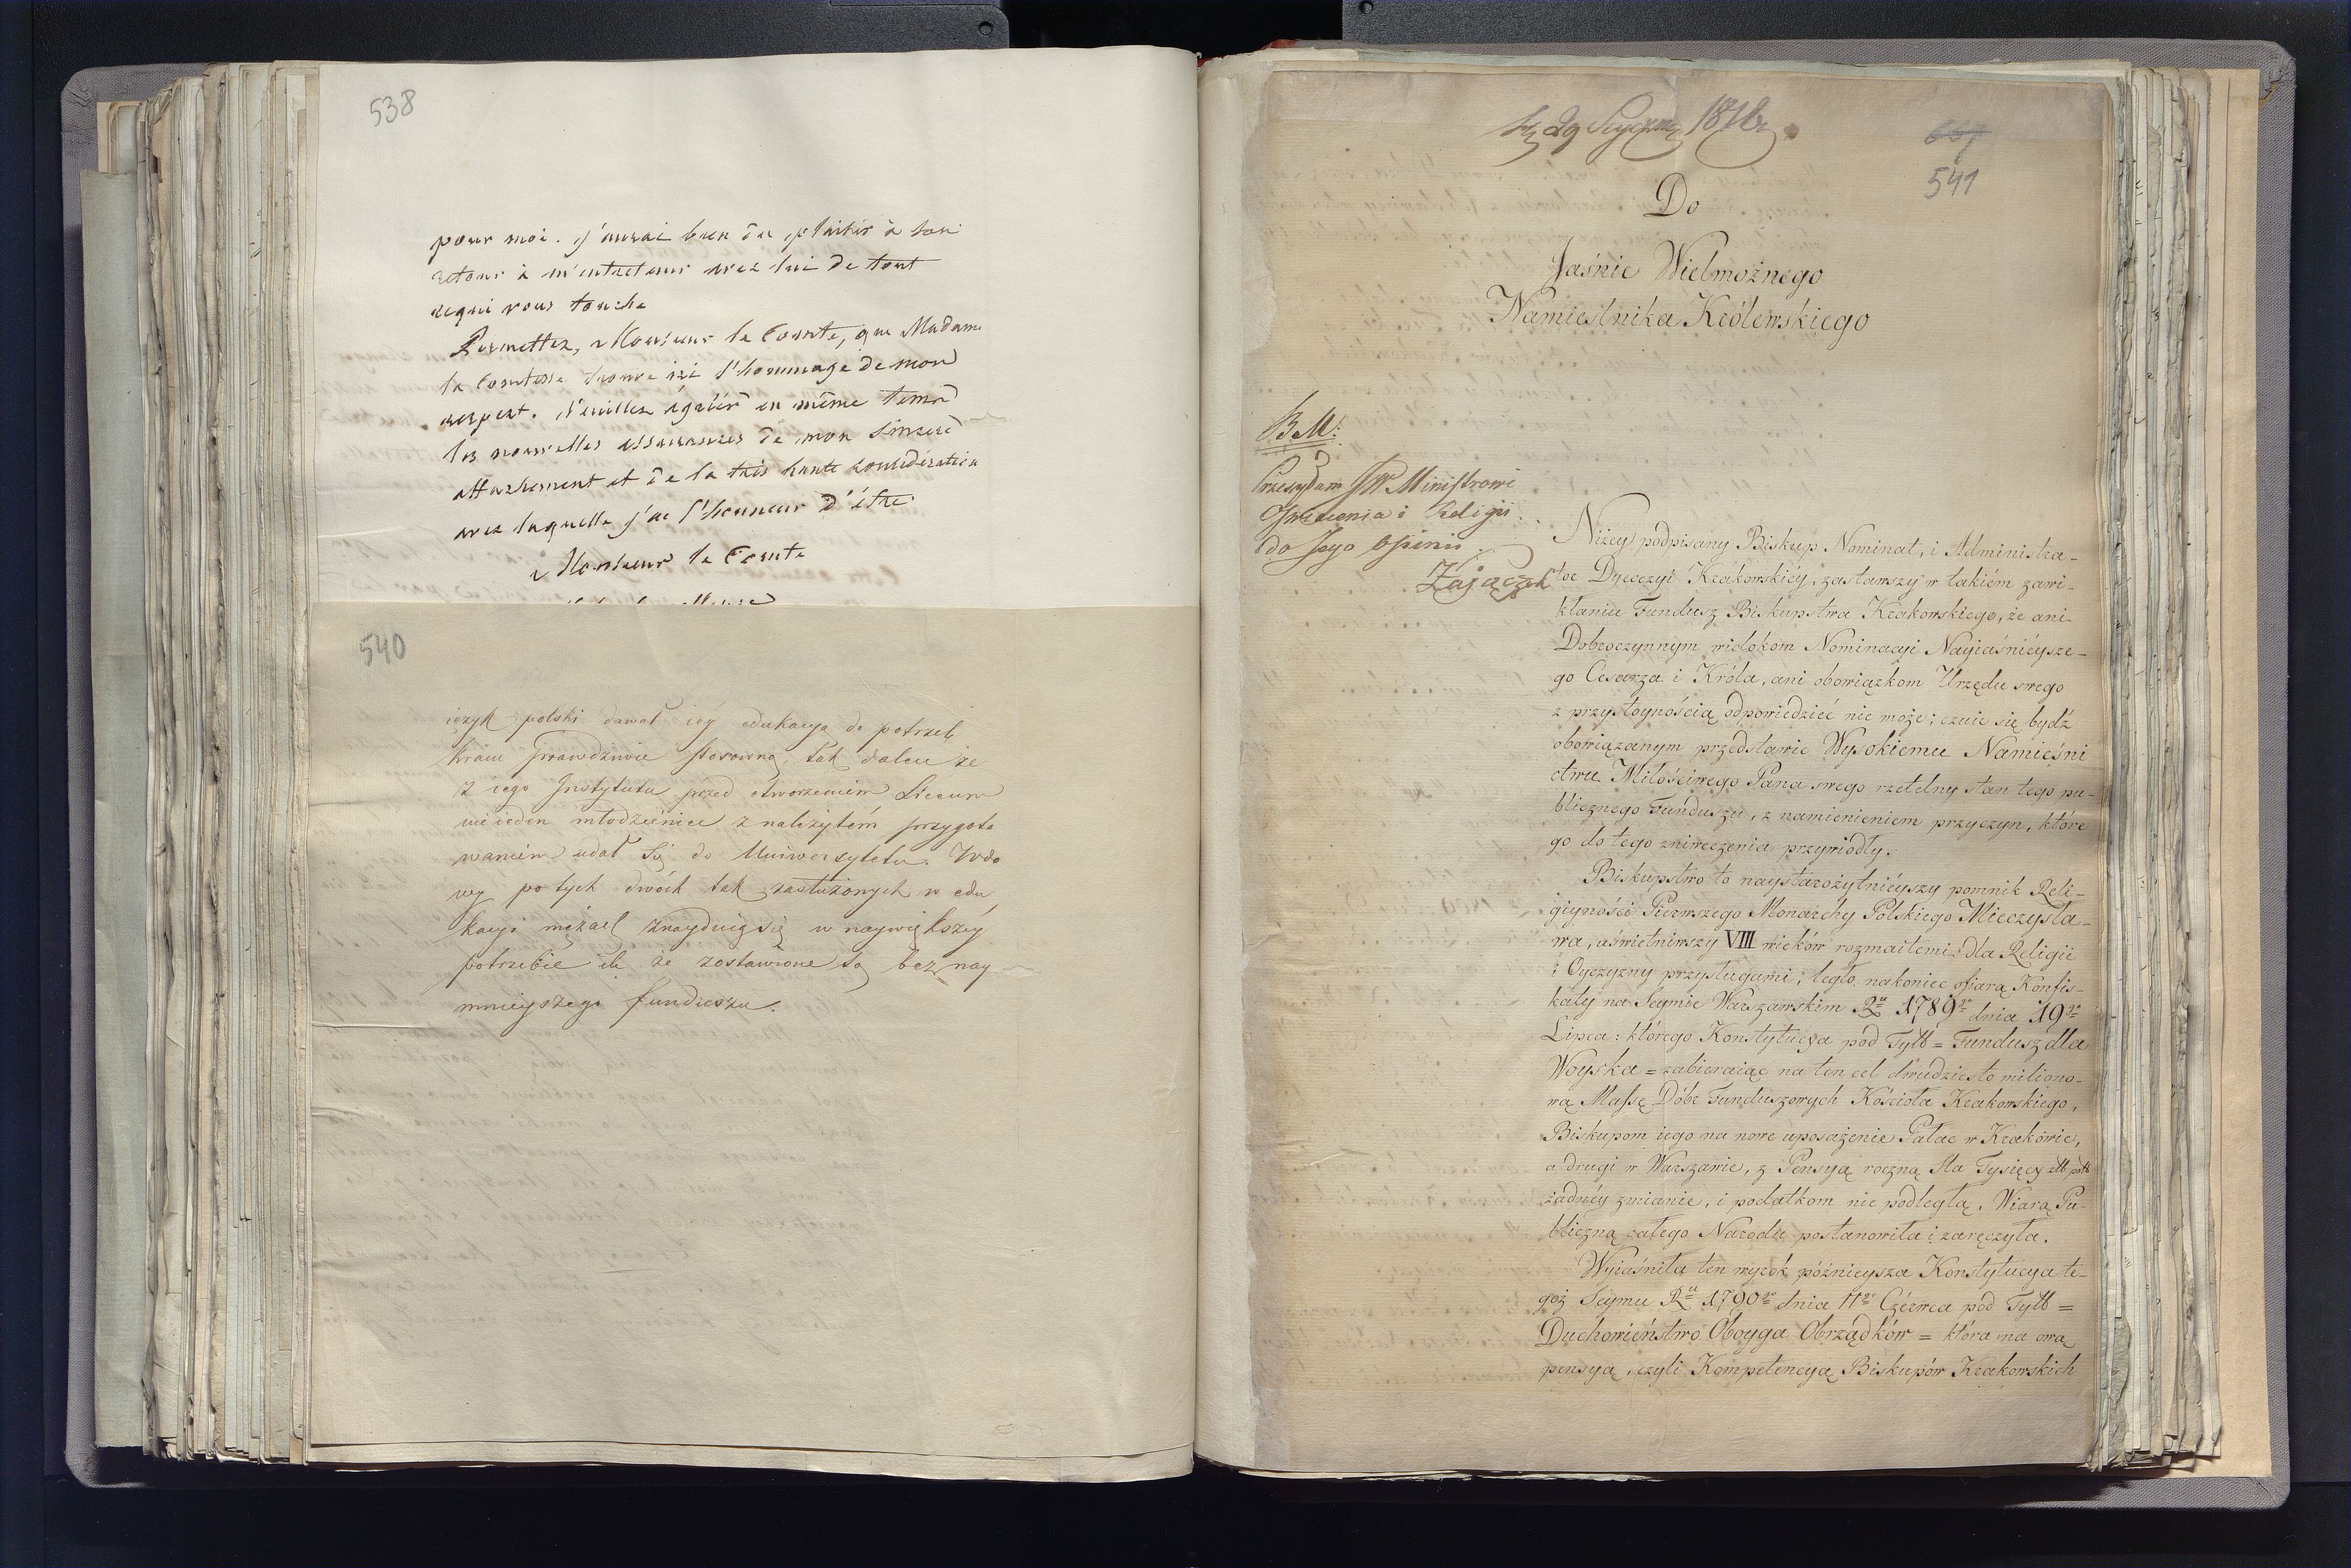 538
pour moi. J'aurai bien du plaisir à son
retour à m'entretenir avec lui de tout
cequi vous touche
Permettez, Monsieur le Comte, que Madame
la Comtesse trouve ici l'hommage de mon
respect. Veuillez agréer en même tems
les nouvelles assurances de mon sincere
attachement et de la très haute considération
avec laquelle j'ai l'honneur d'être
Monsieur le Comte
540
ięzyk polski dawał iéy edukacyą do potrzeb
kraiu prawdziwie stosowną, tak dalece że
z iego Instytutu przed otworzeniem Liceum
nieieden młodzieniec z należytém przygoto
waniem udał się do Uniwersytetu. Wdo
wy po tych dwóch tak zasłużonych w edu
kacyi mężach znayduią się w naywiększéy
potrzebie ile że zostawione są bez nay
mnieyszego funduszu.
29 Stycznia 1818
667
541
Do
Jaśnie Wielmożnego
Namiestnika Królewskiego
B.M:
Przesyłam JW Ministrowi
Oświecenia i Religii
do Jego Opinii
Zajączek
Niżey podpisany Biskup Nominat, i Administra-
tor Dyecezyi Krakowskiéy, zastawszy w takiém zawi-
kłaniu Fundusz Biskupstwa Krakowskiego, że ani
Dobroczynnym widokom Nominacyi Nayiaśnieysze-
go Cesarza i Króla, ani obowiązkom Urzędu swego
z przystoynością odpowiedzieć nie może; czuie się bydź
obowiązanym przedstawić Wysokiemu Namieśni
ctwu Miłościwego Pana swego rzetelny stan tego pu-
blicznego Funduszu, z namienieniem przyczyn, które
go do tego zniweczenia przywiodły.
Biskupstwo to naystarożytniéyszy pomnik Reli-
giyności Pierwszego Monarchy Polskiego Mieczysła-
wa, uświetniwszy VIII wieków rozmaitemi dla Religii
i Oyczyzny przysługami, legło nakoniec ofiarą Konfis-
katy na Seymie Warszawskim Ru 1789go dnia 19go
Lipca: którego Konstytucya pod Tytł = Fundusz dla
Woyska = zabieraiąc na ten cel dwudziesto miliono-
wą Massę Dóbr Funduszowych Kościoła Krakowskiego,
Biskupom iego na nowe uposażenie Pałac w Krakowie,
a drugi w Warszawie, z Pensyą roczną Sta Tysięcy złł poll
żadnéy zmianie, i podatkom nie podległą, Wiarą Pu-
bliczną całego Narodu postanowiła i zaręczyła.
Wyiaśniła ten wyrok późnieysza Konstytucya te-
goż Seymu Ru 1790go dnia 11go Czérwca pod Tytł =
Duchowieństwo Oboyga Obrządków = która na ową
pensyą, czyli Kompetencyą Biskupów Krakowskich